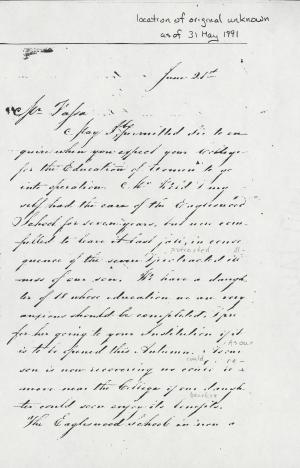 location of original unknown
as of 31 May 1991
June 21st
Mr Vassar
May I be permitted Sir to en-
quire when you expect your College
for the Education of Women to go
into operation. Mr Reid & my
self had the care of the Eagleswood
School for seven years, but were com-
pelled to leave it last fall, in conse
protracted ill-
quence of the severe & protracted ill
ness of our son. We have a daugh-
ter of 18 whose education we are very
anxious should be completed.
for her going to your Institution if it
As our
is to be opened this Autumn. As our
could re-
son is now recovering we could re-
move near the College if our daugh-
benefits
ter could soon enjoy its benefits.
The Eagleswood School is now a